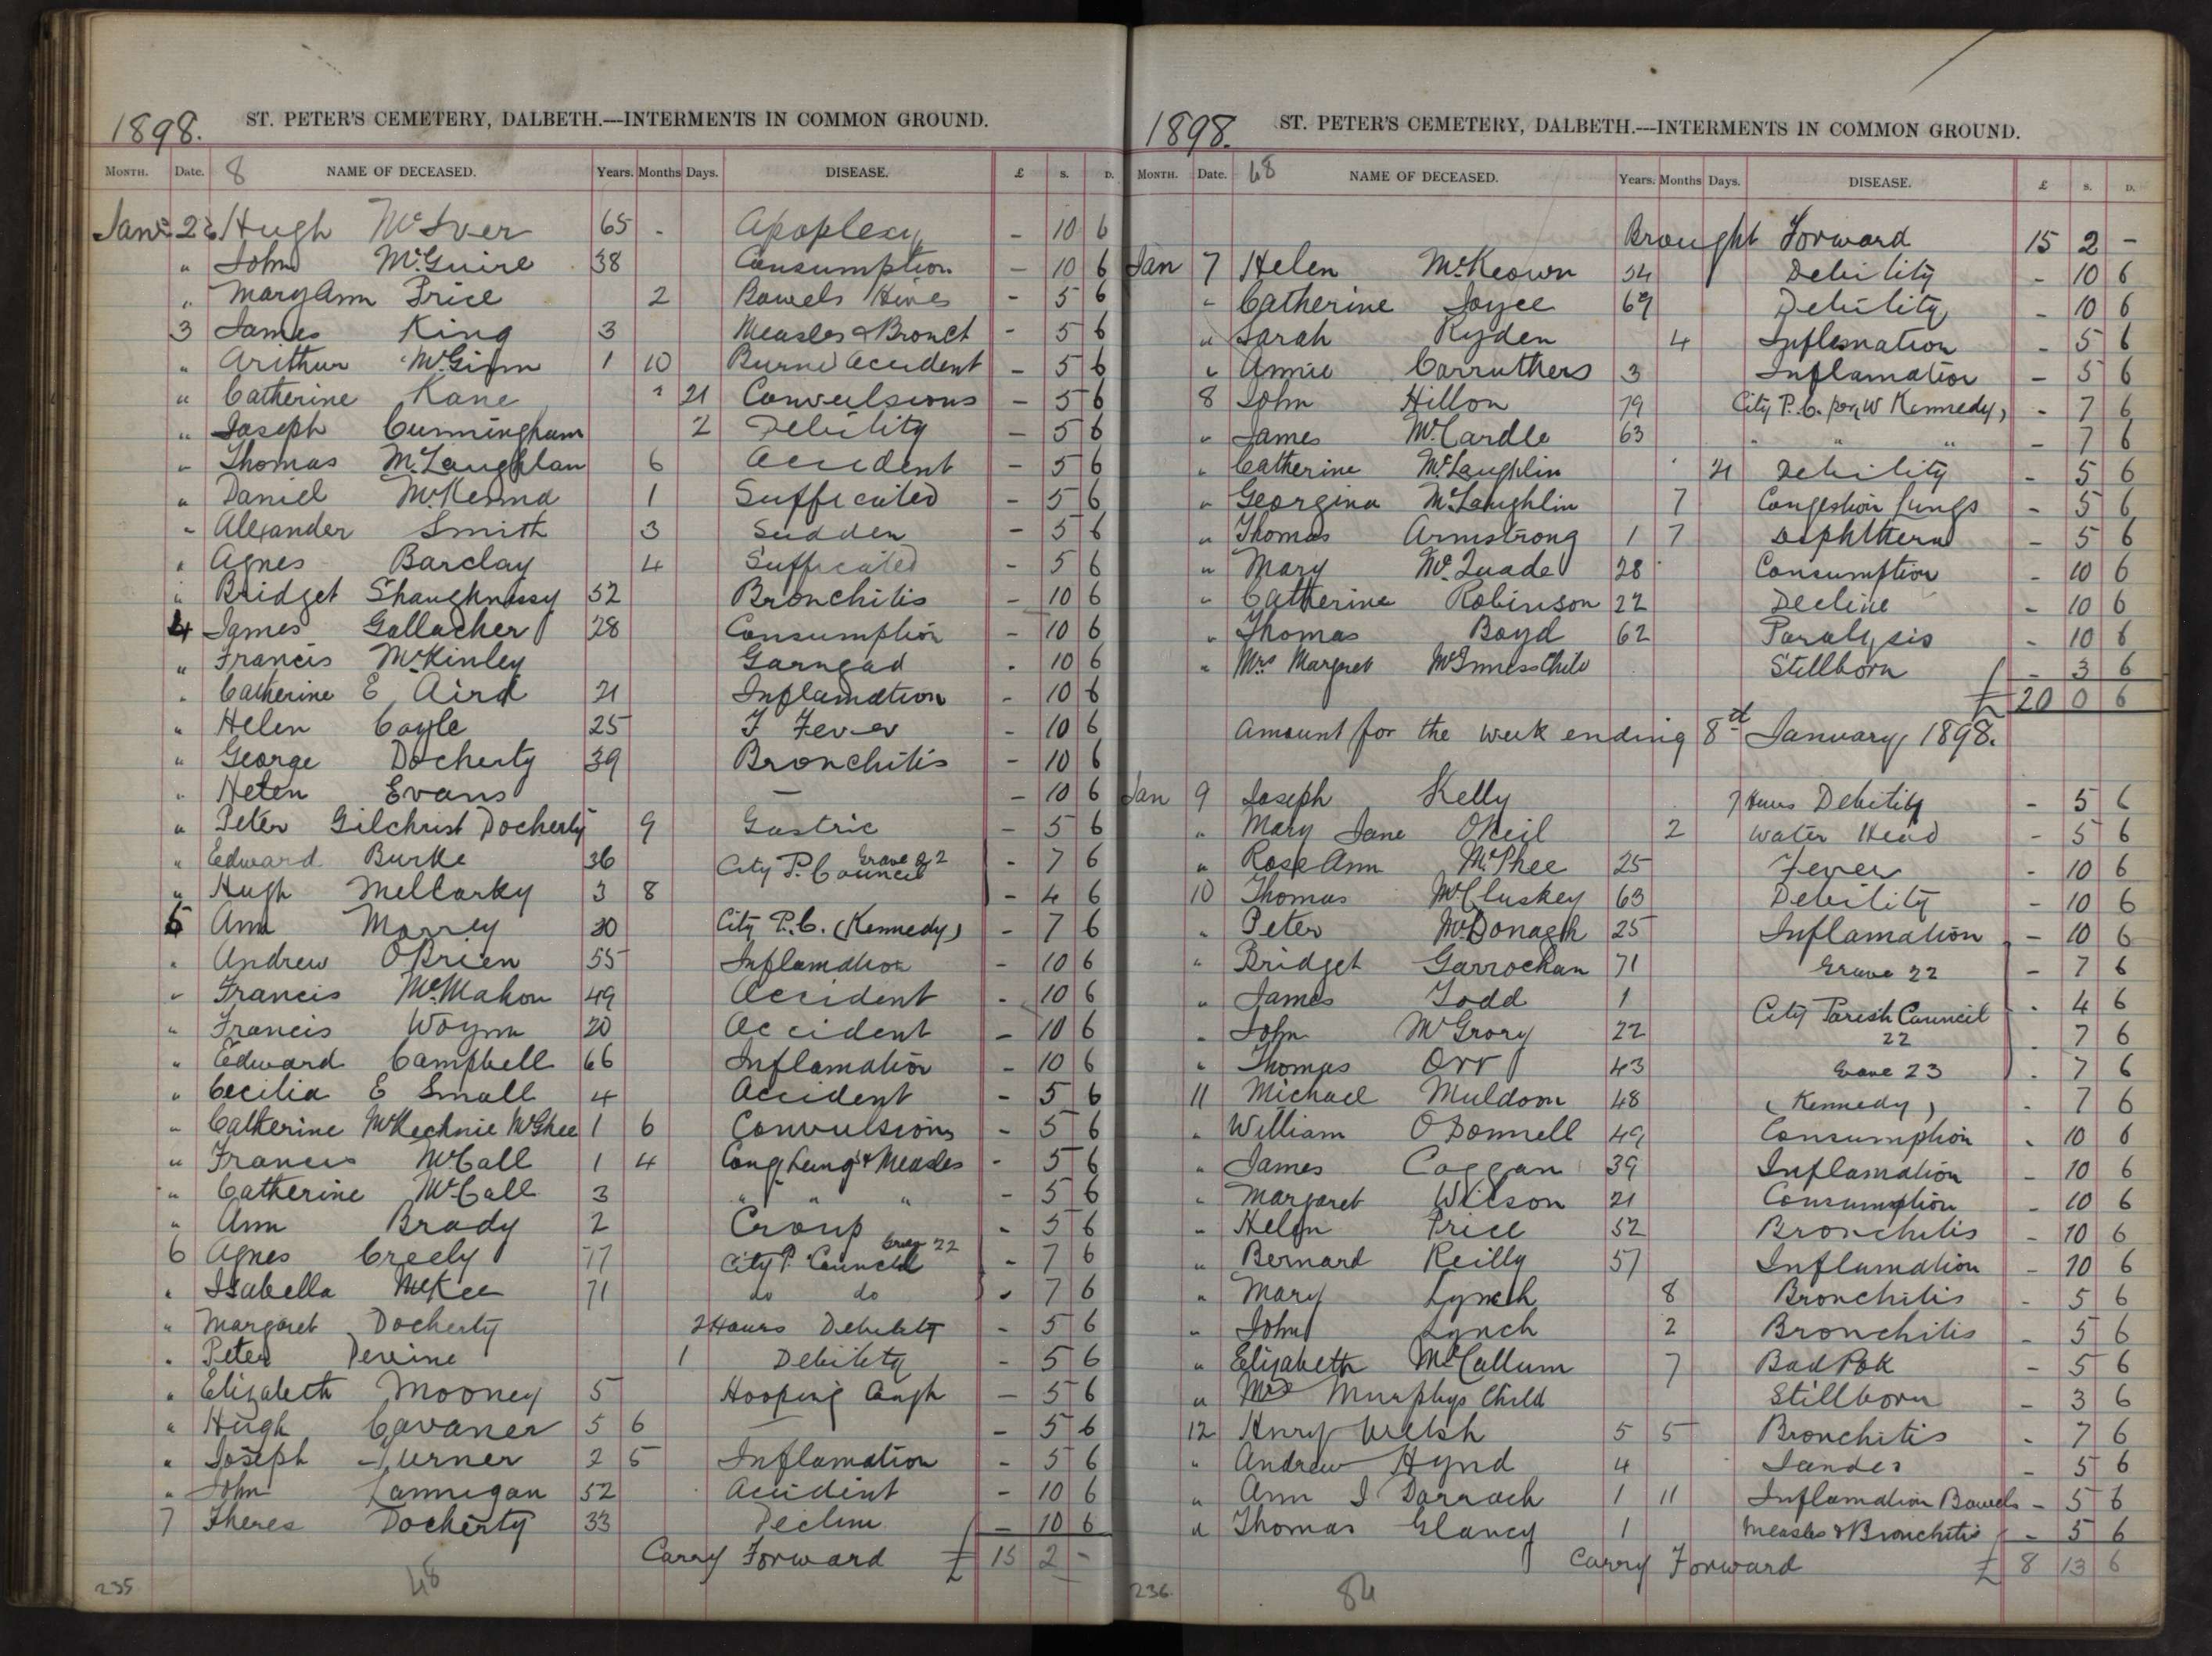 1898.
ST. PETER'S CEMETERY, DALBETH.—INTERMENTS IN COMMON GROUND.
MONTH. Date. 8 NAME OF DECEASED. Years. Months Days. DISEASE. £ S. D.
Hugh McIver 65 - Apoplexy - 10 6
" John McGuire 38 Consumption - 10 6
" Mary Ann Price 2 Bowels Hives - 5 6
3 James King 3 Measles & Bronct - 5 6
" Arithur McGinn 1 10 Burned Accident - 5 6
" Catherine Kane 21 Convulsions - 5 6
" Joseph Cunningham 2 Debility - 5 6
" Thomas McLaughlan 6 Accident - 5 6
" Daniel McKenna 1 Sufficated - 5 6
" Alexander Smith 3 Sudden - 5 6
" Agnes Barclay 4 Sufficated - 5 6
" Bridget Shaughnassy 52 Bronchitis - 10 6
4 James Gallacher 28 Consumption - 10 6
" Francis McKinley Garngad - 10 6
" Catherine E Aird 21 Inflamation - 10 6
" Helen Coyle 25 T Fever - 10 6
" George Docherty 39 Bronchitis - 10 6
" Helen Evans — - 10 6
" Peter Gilchrist Docherty 9 Gastric - 5 6
" Edward Burke 36 City P. Council Grave 22 - 7 6
" Hugh Mellarky 3 8 - 4 6
5 Ann Morrey 30 City P.C. (Kennedy) - 7 6
" Andrew OBrien 55 Inflamation - 10 6
" Francis McMahon 49 Accident - 10 6
" Francis Woynn 20 Accident - 10 6
" Edward Campbell 66 Inflamation - 10 6
" Cecilia E Small 4 Accident - 5 6
" Catherine McKechnie McGhee 1 6 Convulsions - 5 6
" Francis McCall 1 4 Cong Lung & Measles - 5 6
" Catherine McCall 3 " " " - 5 6
" Ann Brady 2 Croup - 5 6
6 Agnes Creely 77 City P. Council Grave 22 - 7 6
" Isabella McKee 71 do do - 7 6
" Margaret Docherty 2 Hours Debility - 5 6
" Peter Devine 1 Debility - 5 6
" Elizabeth Mooney 5 Hooping Cough - 5 6
" Hugh Cavaner 5 6 — - 5 6
" Joseph Turner 2 5 Inflamation - 5 6
" John Lannigan 52 Accident - 10 6
7 Theres Docherty 33 Decline - 10 6
Carry Forward £ 15 2 -
235 48
1898.
ST. PETER'S CEMETERY, DALBETH.—INTERMENTS IN COMMON GROUND.
MONTH. Date. 48 NAME OF DECEASED. Years. Months Days. DISEASE. £ S. D.
Brought Forward 15 2 -
Jan 7 Helen McKeown 54 Debility - 10 6
" Catherine Joyce 69 Debility - 10 6
" Sarah Ryden 4 Inflamation - 5 6
" Annie Carruthers 3 Inflamation - 5 6
8 John Hillon 79 City P.C. per (W Kennedy) - 7 6
" James McCardle 63 " " " - 7 6
" Catherine McLaughlin 21 Debility - 5 6
" Georgina McLaughlin 7 Congestion Lungs - 5 6
" Thomas Armstrong 1 7 Diphtheria - 5 6
" Mary McQuade 28 Consumption - 10 6
" Catherine Robinson 22 Decline - 10 6
" Thomas Boyd 62 Paralysis - 10 6
" Mrs Margaret McInness Child Stillborn - 3 6
£ 20 0 6
Amount for the week ending 8th January, 1898.
Jan 9 Joseph Kelly 7 Hours Debility - 5 6
" Mary Jane ONeil 2 Water Head - 5 6
" Rose Ann McPhee 25 Fever - 10 6
10 Thomas McCluskey 63 Debility - 10 6
" Peter McDonagh 25 Inflamation - 10 6
" Bridget Garrochan 71 Grave 22 - 7 6
" James Todd 1 City Parish Council - 4 6
" John McGrory 22 22 - 7 6
" Thomas Orr 43 Grave 23 - 7 6
11 Michael Muldoon 48 (Kennedy) - 7 6
" William ODonnell 49 Consumption - 10 6
" James Coggan 39 Inflamation - 10 6
" Margaret Wilson 21 Consumption - 10 6
" Helen Price 52 Bronchitis - 10 6
" Bernard Reilly 57 Inflamation - 10 6
" Mary Lynch 8 Bronchitis - 5 6
" John Lynch 2 Bronchitis - 5 6
" Elizabeth McCallum 7 Bad Pok - 5 6
" Mrs Murphys Child Stillborn - 3 6
12 Henry Welsh 5 5 Bronchitis - 7 6
" Andrew Hynd 4 Jandes - 5 6
" Ann J Darroch 1 11 Inflamation Bowels - 5 6
" Thomas Glancy 1 Measles & Bronchitis - 5 6
Carry Forward £ 8 13 6
236. 84